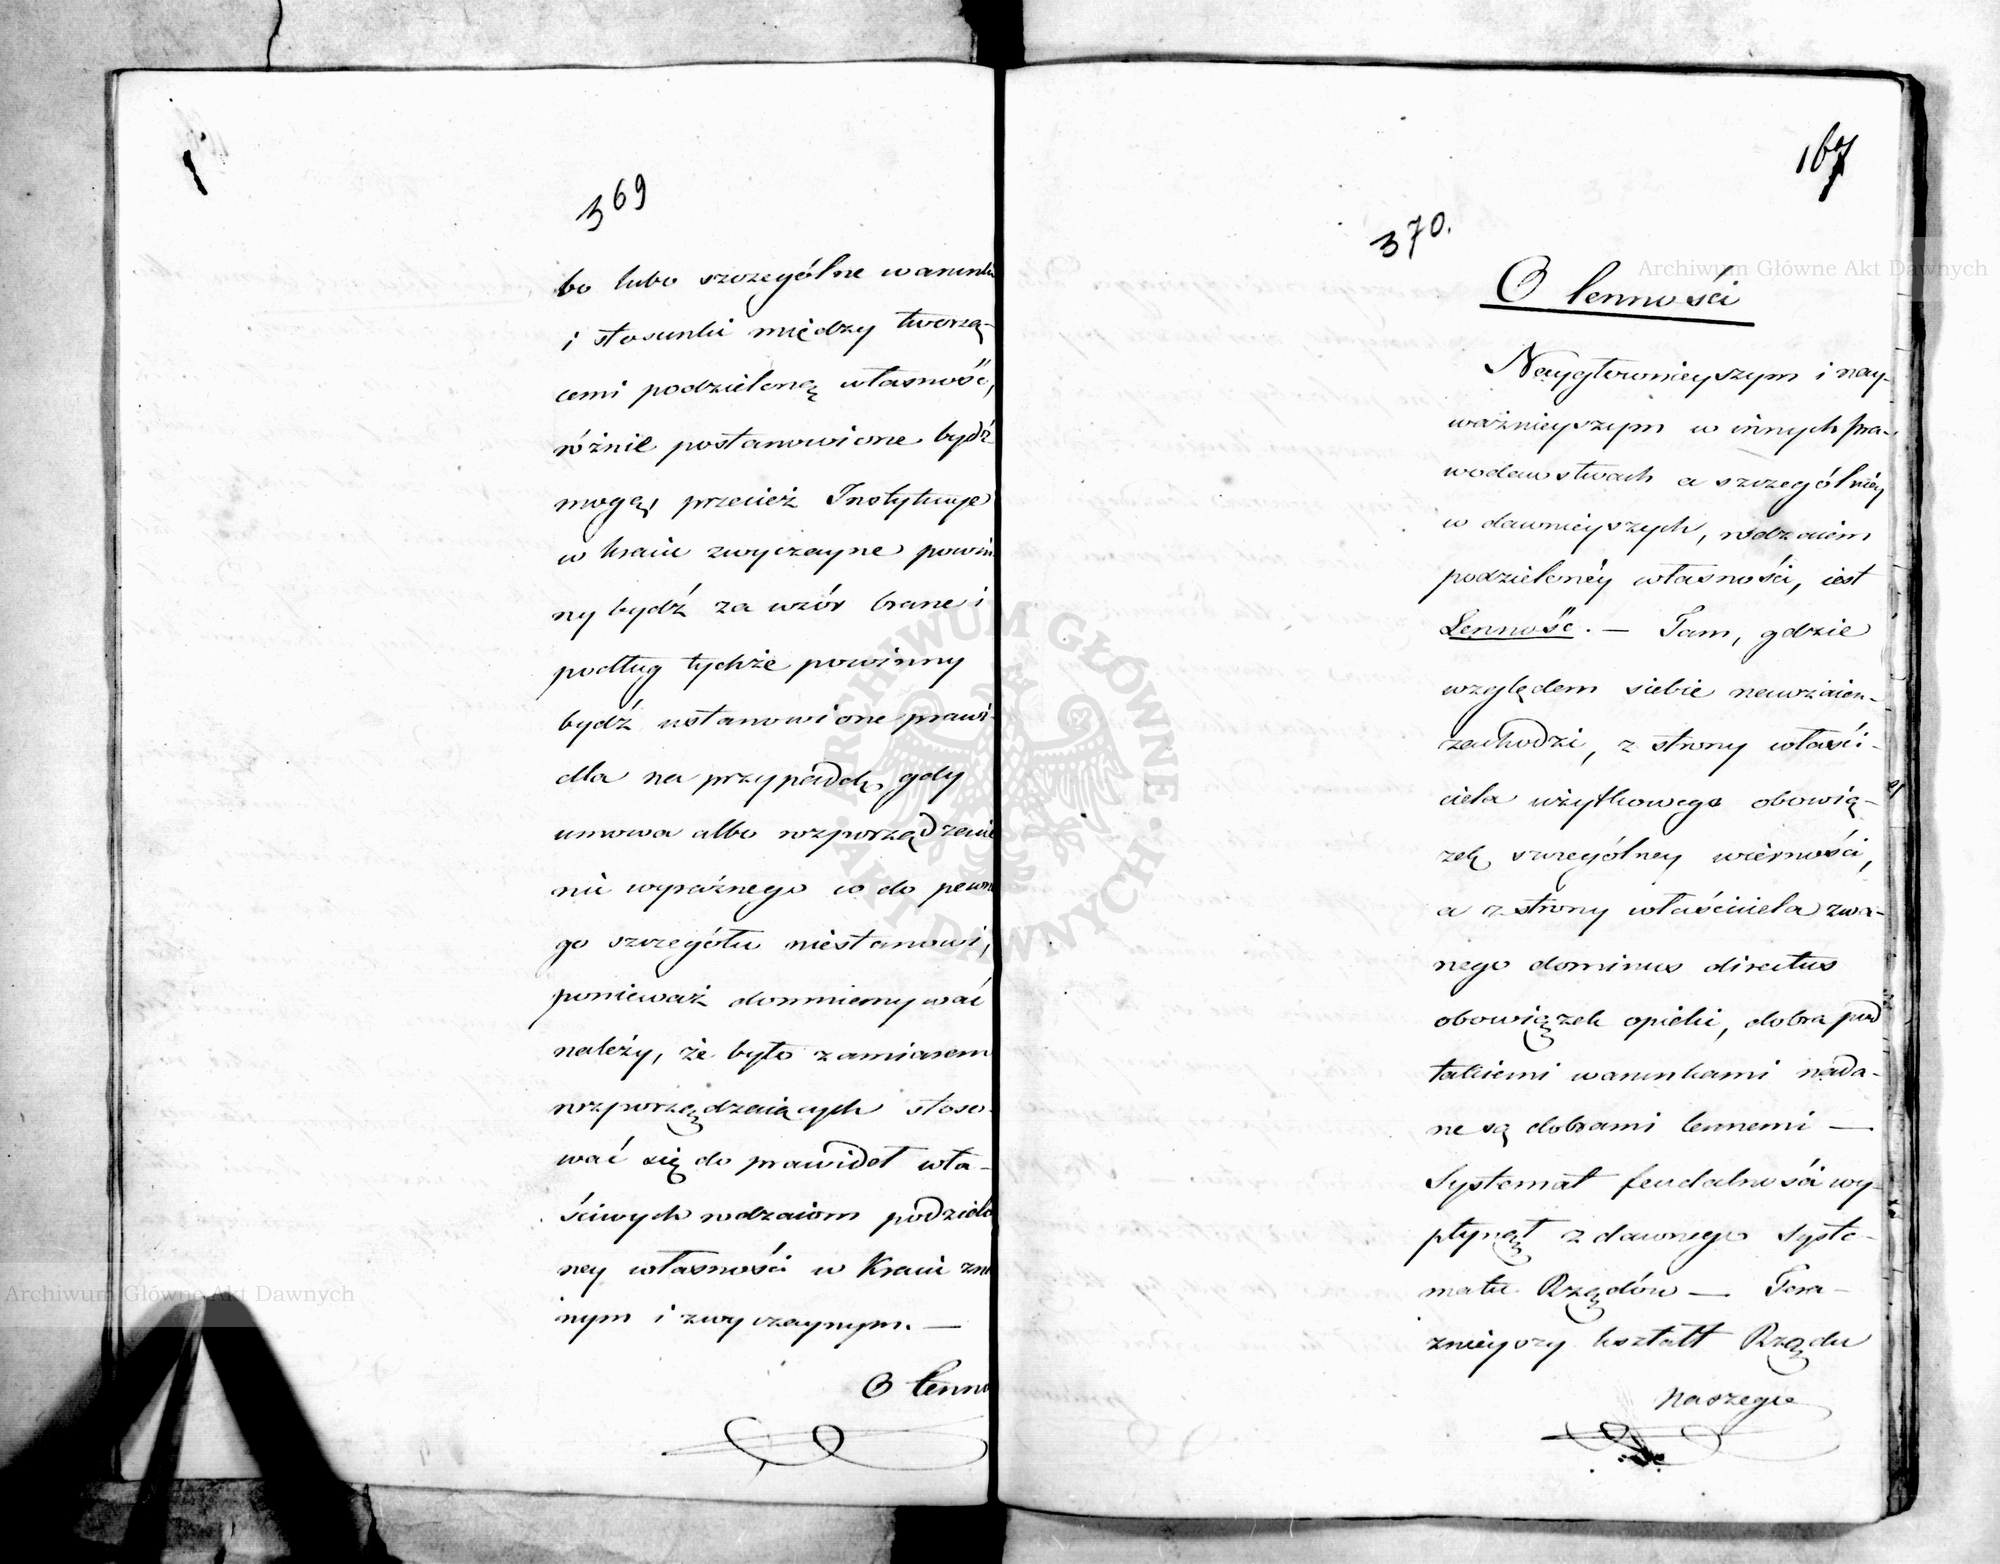 369
bo lubo szczególne warunki
i stosunki między tworzą-
cemi podzieloną własność,
różnie postanowione bydź
mogą, przecież Instytucye
w kraiu zwyczayne powin
ny bydź za wzór brane i
podług tychże powinny
bydź ustanowione prawi-
dła na przypadek, gdy
umowa albo rozporządzenie
nic wyraźnego co do pewne
go szczegółu niestanowi,
ponieważ domniemywać
należy, że było zamiarem
rozporządzaiących stoso-
wać się do prawideł wła-
ściwych rodzaiom podzielo
ney własności w Kraiu zna
nym i zwyczaynym. —
O lenno
167
370.
O lenności
Naygłownieyszym i nay-
ważnieyszym w innych pra-
wodawstwach a szczególniey
w dawnieyszych, rodzaiem
podzieloney własności, iest
Lenność. — Tam, gdzie
względem siebie nawzaiem
zachodzi, z strony właści-
ciela użytkowego obowią-
zek szczególney wierności,
a z strony właściciela zwa-
nego dominus directus
obowiązek opieki, dobra pod
takiemi warunkami nada-
ne są dobrami lennemi —
Systemat feudalności wy-
płynął z dawnego Syste-
matu Rządów — Tera-
znieyszy kształt Rządu
naszego
Archiwum Główne Akt Dawnych
ARCHIWUM GŁÓWNE AKT DAWNYCH
Archiwum Główne Akt Dawnych